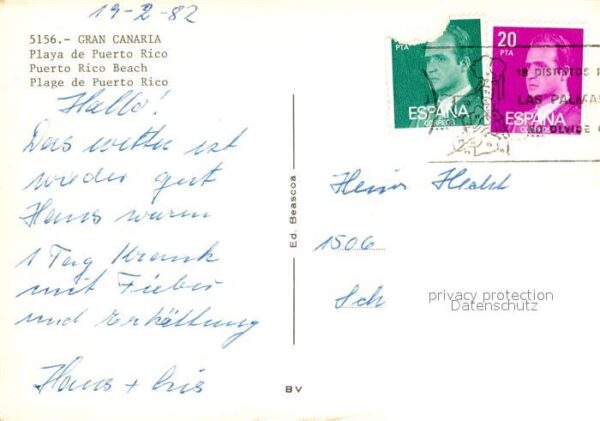 19-2-82
5156.- GRAN CANARIA
Playa de Puerto Rico
Puerto Rico Beach
Plage de Puerto Rico
Hallo!
Das wetter ist
wieder gut
Hans waren
1 Tag Krank
mit Fieber
und Erkältung
Hans + Cris
Ed. Beascoa
BV
PTA
ESPAÑA
CORREOS
20
PTA
ESPAÑA
CORREOS
18 DISTRITOS
LAS PALMAS
NO OLVIDE
1506
Sch
privacy protection
Datenschutz